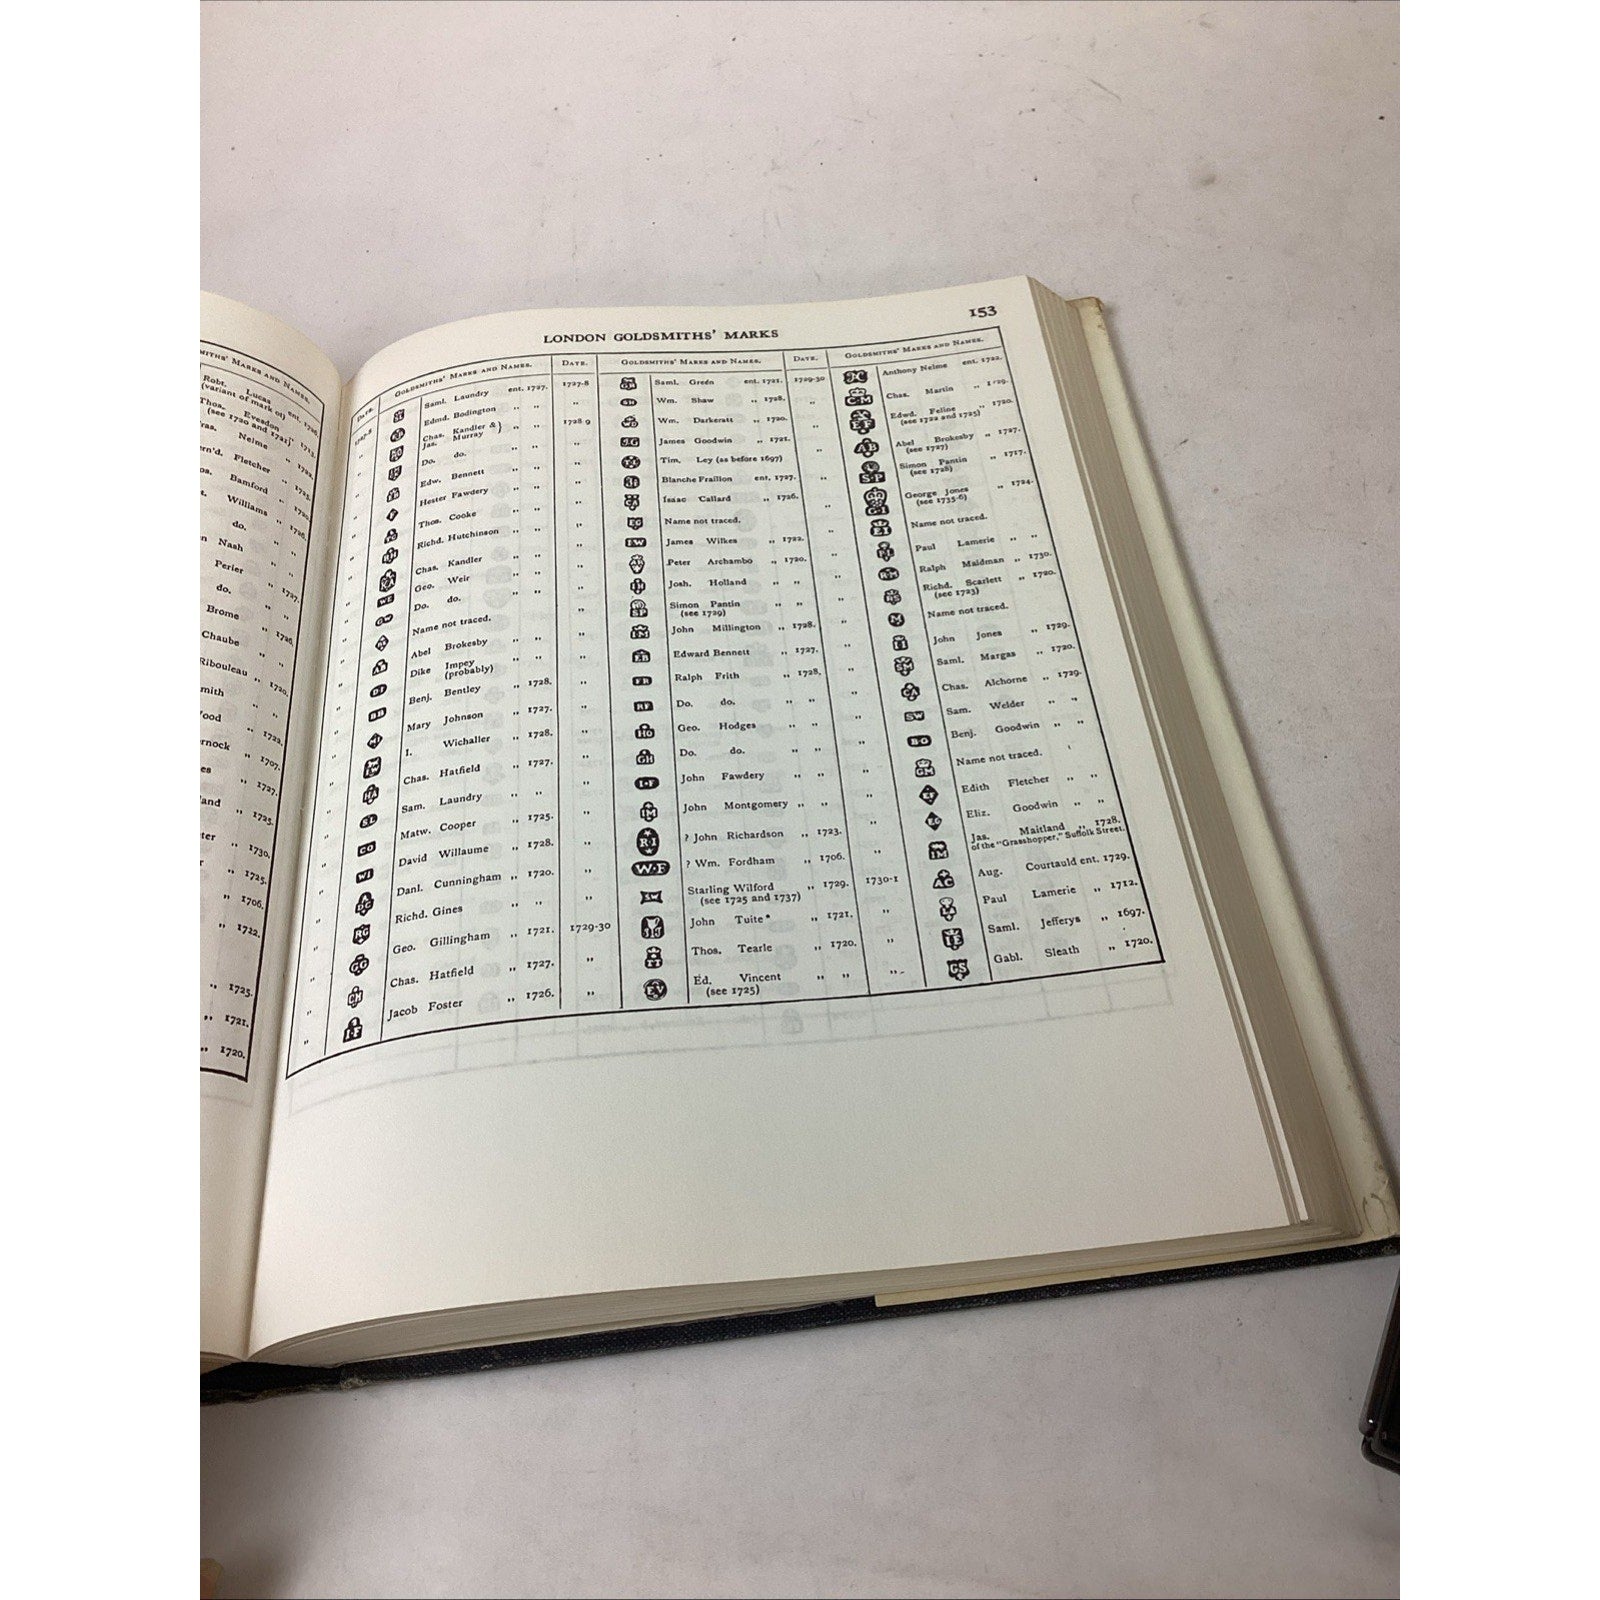 SMITHS' MARKS AND NAMES.
Robt. Lucas ent. 1726
(variant of mark of)
Thos. Evesdon
(see 1720 and 1721) 1713.
ras. Nelme „ 1722.
ern'd. Fletcher „ 1725.
os. Bamford „ 1720.
t. Williams „ 1726.
do. „ „
n Nash „ „
Perier „ 1727.
do. „ „
Brome „ 1726.
Chaube „ „
Ribouleau „ 1720.
mith „ „
Wood „ 1722.
ernock „ 1707.
es „ 1727.
land „ 1725.
ter „ 1730.
r „ 1725.
„ 1706.
„ 1722.
„ 1725.
„ 1721.
„ 1720.
153
LONDON GOLDSMITHS' MARKS
DATE. GOLDSMITHS' MARKS AND NAMES.
1727-8 Saml. Laundry ent. 1727.
„ Edmd. Bodington „ „
„ Chas. Kandler & } „ „
Jas. Murray
„ Do. do. „ „
„ Edw. Bennett „ „
„ Hester Fawdery „ „
„ Thos. Cooke „ „
„ Richd. Hutchinson „ „
„ Chas. Kandler „ „
„ Geo. Weir „ „
„ Do. do. „ „
„ Name not traced.
„ Abel Brokesby „ „
„ Dike Impey „ „
(probably)
„ Benj. Bentley „ 1728.
„ Mary Johnson „ 1727.
„ I. Wichaller „ 1728.
„ Chas. Hatfield „ 1727.
„ Sam. Laundry „ „
„ Matw. Cooper „ 1725.
„ David Willaume „ 1728.
„ Danl. Cunningham „ 1720.
„ Richd. Gines „ „
„ Geo. Gillingham „ 1721.
„ Chas. Hatfield „ 1727.
„ Jacob Foster „ 1726.
DATE. GOLDSMITHS' MARKS AND NAMES.
1727-8 Saml. Green ent. 1721.
„ Wm. Shaw „ 1728.
1728 9 Wm. Darkeratt „ 1720.
„ James Goodwin „ 1721.
„ Tim. Ley (as before 1697)
„ Blanche Fraillon ent. 1727.
„ Isaac Callard „ 1726.
„ Name not traced.
„ James Wilkes „ 1722.
„ Peter Archambo „ 1720.
„ Josh. Holland „ „
„ Simon Pantin „ „
(see 1729)
„ John Millington „ 1728.
„ Edward Bennett „ 1727.
„ Ralph Frith „ 1728.
„ Do. do. „ „
„ Geo. Hodges „ „
„ Do. do. „ „
„ John Fawdery „ „
„ John Montgomery „ „
„ ? John Richardson „ 1723.
„ ? Wm. Fordham „ 1706.
„ Starling Wilford „ 1729.
(see 1725 and 1737)
1729-30 John Tuite* „ 1721.
„ Thos. Tearle „ 1720.
„ Ed. Vincent „ „
(see 1725)
DATE. GOLDSMITHS' MARKS AND NAMES.
1729-30 Anthony Nelme ent. 1722.
„ Chas. Martin „ 1729.
„ Edwd. Feline „ 1720.
(see 1722 and 1725)
„ Abel Brokesby „ 1727.
(see 1727)
„ Simon Pantin „ 1717.
(see 1728)
„ George Jones „ 1724.
(see 1735-6)
„ Name not traced.
„ Paul Lamerie „ „
„ Ralph Maidman „ 1730.
„ Richd. Scarlett „ 1720.
(see 1723)
„ Name not traced.
„ John Jones „ 1729.
„ Saml. Margas „ 1720.
„ Chas. Alchorne „ 1729.
„ Sam. Welder „ „
„ Benj. Goodwin „ „
„ Name not traced.
„ Edith Fletcher „ „
„ Eliz. Goodwin „ „
„ Jas. Maitland „ 1728.
of the "Grasshopper," Suffolk Street.
1730-1 Aug. Courtauld ent. 1729.
„ Paul Lamerie „ 1712.
„ Saml. Jefferys „ 1697.
„ Gabl. Sleath „ 1720.